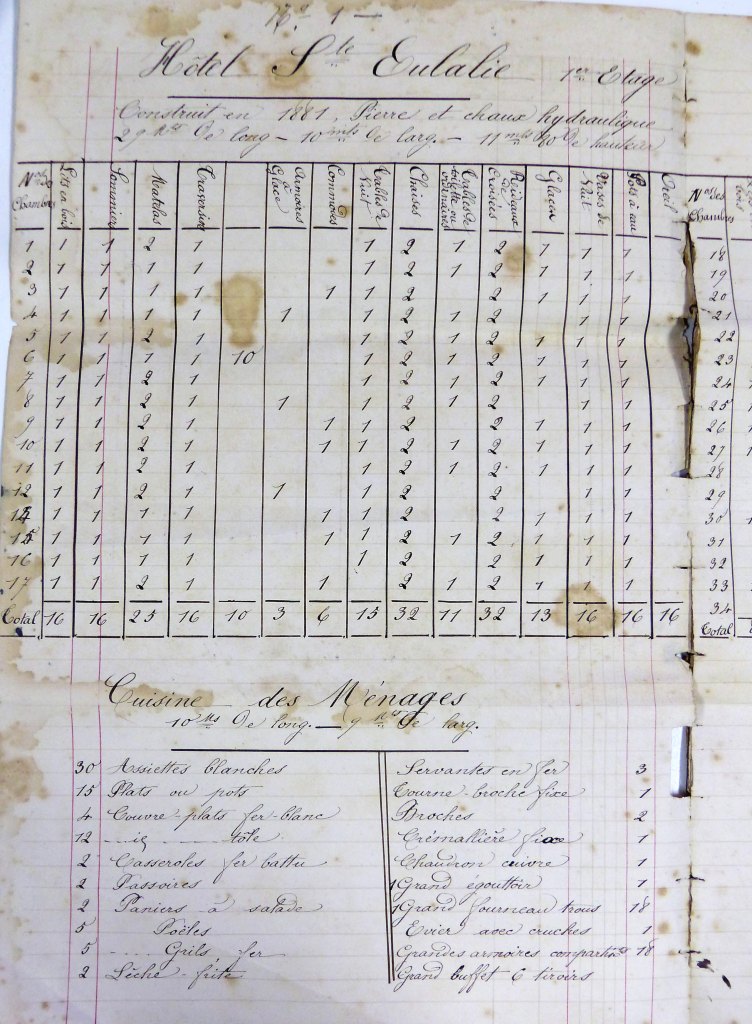 No 1
Hôtel Ste Eulalie 1er Etage
Construit en 1881, Pierre et chaux hydraulique
29 Mts de long - 10 mts de larg. - 11 mts 80 de hauteur
Nos des Chambres Lits en bois Sommier Matelas Traversin Armoires à Glace Commodes Tables de Nuit Chaises Tables de toilette ou ordinaires Rideaux de Croisées Glaces Vases de Nuit Pots à eau Oreil Nos des Chambres
1 1 1 2 1 1 2 1 2 1 1 1 18
2 1 1 1 1 1 2 1 2 1 1 1 19
3 1 1 1 1 1 1 2 2 1 1 1 20
4 1 1 1 1 1 1 2 1 2 1 1 21
5 1 1 2 1 1 2 1 2 1 1 1 22
6 1 1 1 1 10 1 2 1 2 1 1 1 23
7 1 1 2 1 1 2 1 2 1 1 1 24
8 1 1 2 1 1 1 2 1 2 1 1 25
9 1 1 2 1 1 1 2 2 1 1 1 26
10 1 1 2 1 1 1 2 1 2 1 1 1 27
11 1 1 2 1 1 2 1 2 1 1 1 28
12 1 1 2 1 1 1 2 2 1 1 29
14 1 1 1 1 1 1 2 2 1 1 1 30
15 1 1 1 1 1 1 2 1 2 1 1 1 31
16 1 1 1 1 1 2 2 1 1 1 32
17 1 1 2 1 1 2 1 2 1 1 1 33
34
Total 16 16 25 16 10 3 6 15 32 11 32 13 16 16 16 Total
Cuisine des Ménages
10 Mts de long. - 9 Mts de larg.
30 Assiettes blanches
15 Plats ou pots
4 Couvre-plats fer-blanc
12 ..id ..... tôle
2 Casseroles fer battu
2 Passoires
2 Paniers à salade
5 Poëles
5 .... Grils fer
2 Lèche-frite
Servantes en fer 3
Tourne-broche fixe 1
Broches 2
Crémaillère fixe 1
Chaudron cuivre 1
1 Grand égouttoir 1
1 Grand fourneau trous 18
Evier avec cruches 1
Grandes armoires compartnts 18
Grand buffet 6 tiroirs